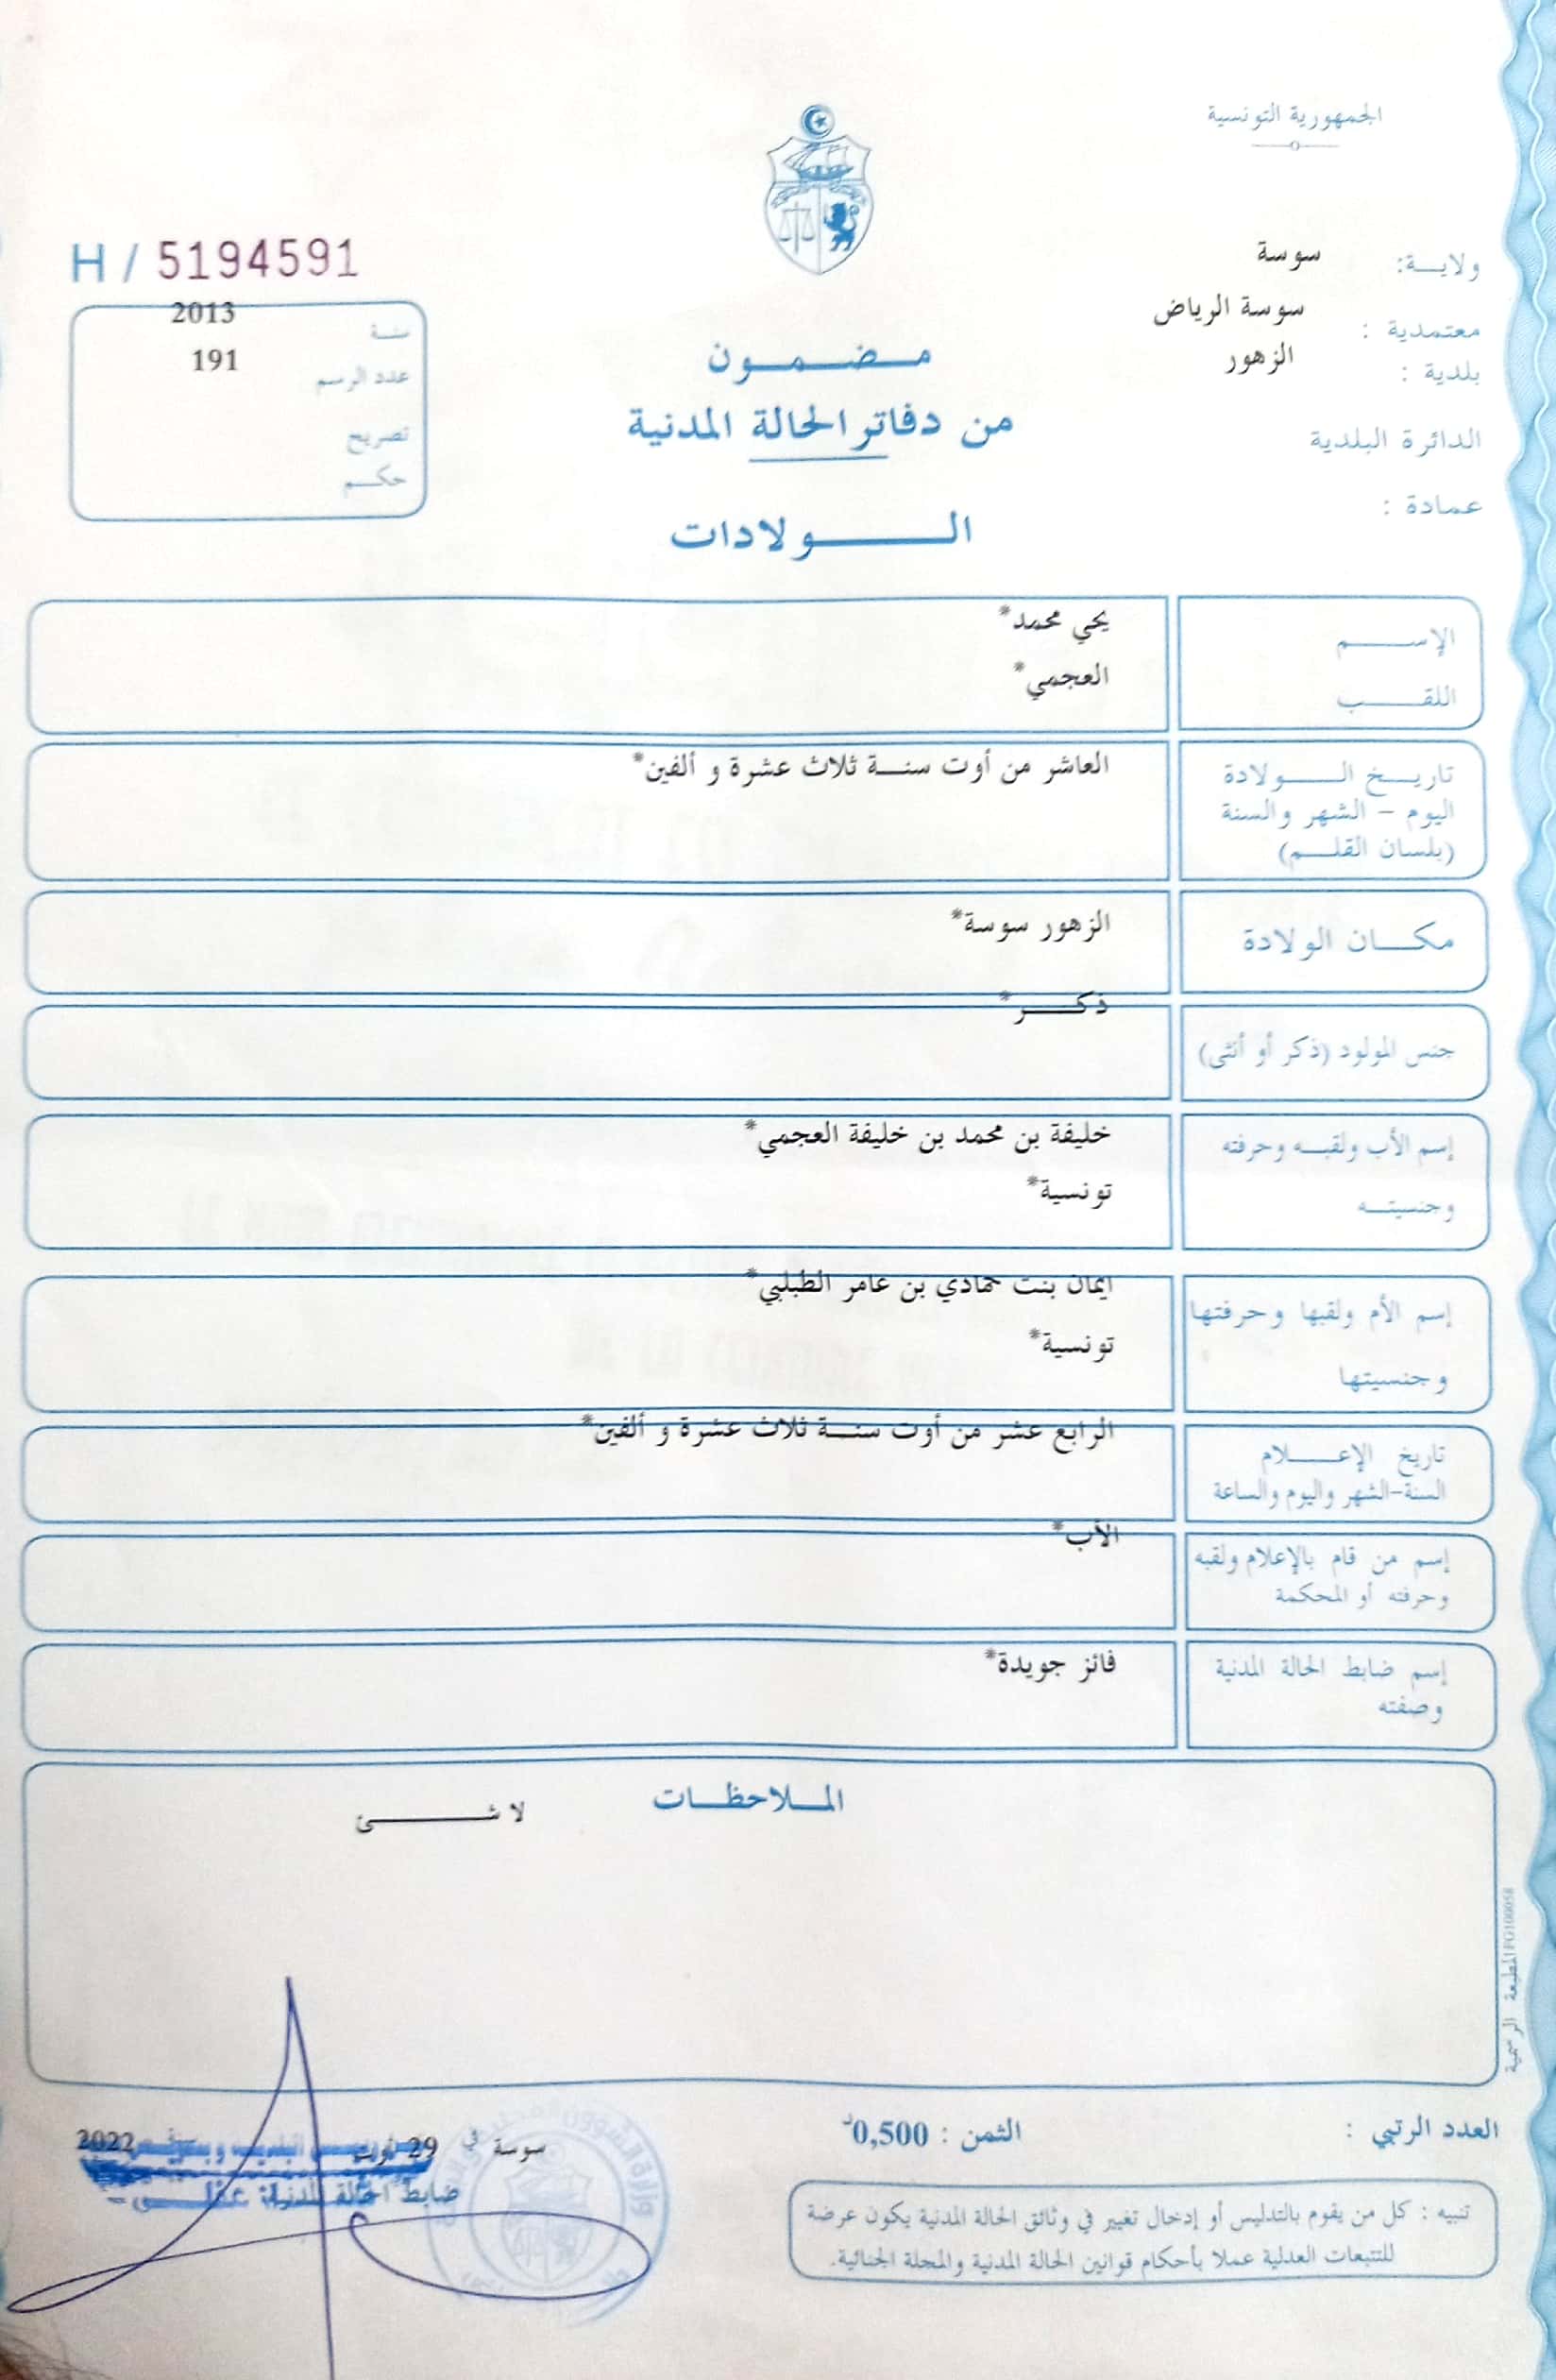 الجمهورية التونسية
ولايـة: سوسة
معتمدية : سوسة الرياض
بلدية : الزهور
الدائرة البلدية
عمادة :
H / 5194591
سنة 2013
عدد الرسم 191
تصريح
حكم
مضمون
من دفاتر الحالة المدنية
الولادات
الإسم يحي محمد*
اللقب العجمي*
تاريخ الولادة العاشر من أوت سنة ثلاث عشرة و ألفين*
اليوم - الشهر والسنة
(بلسان القلم)
مكان الولادة الزهور سوسة*
جنس المولود (ذكر أو أنثى) ذكر*
إسم الأب ولقبه وحرفته خليفة بن محمد بن خليفة العجمي*
وجنسيته تونسية*
إسم الأم ولقبها وحرفتها ايمان بنت حمادي بن عامر الطبلبي*
وجنسيتها تونسية*
تاريخ الإعلام الرابع عشر من أوت سنة ثلاث عشرة و ألفين*
السنة-الشهر واليوم والساعة
إسم من قام بالإعلام ولقبه الأب*
وحرفته أو المحكمة
إسم ضابط الحالة المدنية فائز جويدة*
وصفته
الملاحظات
لا شئ
المطبعة الرسمية FG100058
العدد الرتبي :
الثمن : 0,500د
سوسة في 29 اوت 2022
ضابط الحالة المدنية
تنبيه : كل من يقوم بالتدليس أو إدخال تغيير في وثائق الحالة المدنية يكون عرضة
للتتبعات العدلية عملا بأحكام قوانين الحالة المدنية والمجلة الجنائية.